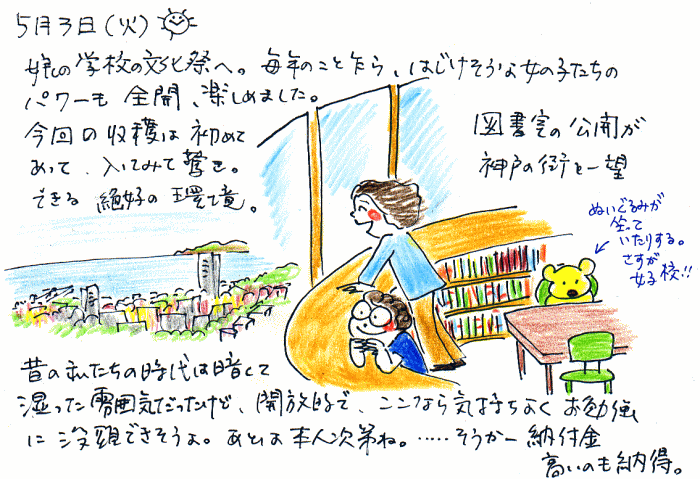 5月3日(火)
娘の学校の文化祭へ。毎年のこと乍ら、はじけそうな女の子たちの
パワーも全開、楽しめました。
今回の収穫は初めて
図書室の公開が
あって、入ってみて驚き。
神戸の街を一望
できる絶好の環境。
ぬいぐるみが
坐って
いたりする。
さすが
女子校!!
昔の私たちの時代は暗くて
湿った雰囲気だったけど、開放的で、ここなら気持ちよくお勉強
に没頭できそうよ。あとは本人次第ね。……そうかー納付金
高いのも納得。